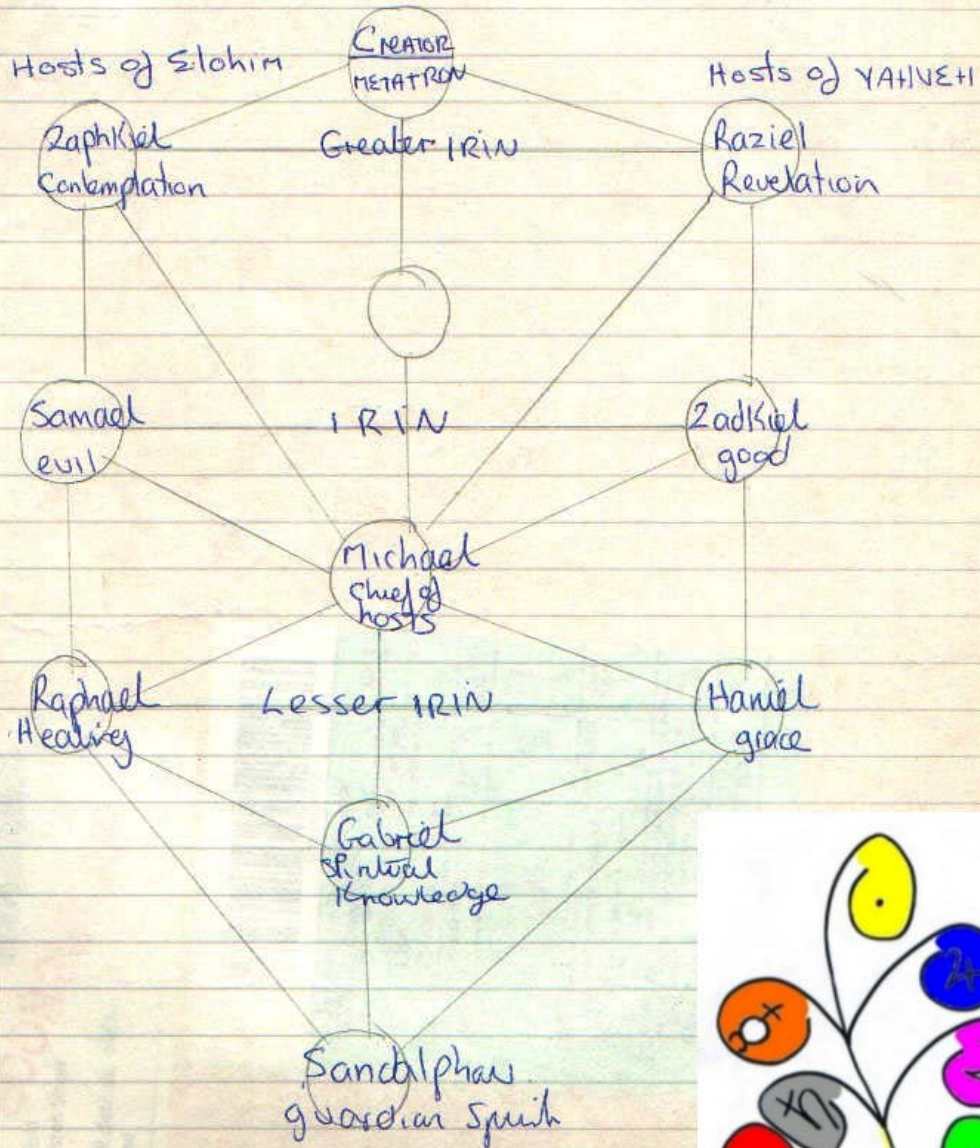 CREATOR
METATRON
Hosts of Elohim
Hosts of YAHVEH
Zaphkiel
Contemplation
Greater IRIN
Raziel
Revelation
Samael
evil
IRIN
Zadkiel
good
Michael
Chief of
hosts
Raphael
Healing
Lesser IRIN
Haniel
grace
Gabriel
Spiritual
Knowledge
Sandalphon
guardian Spirit